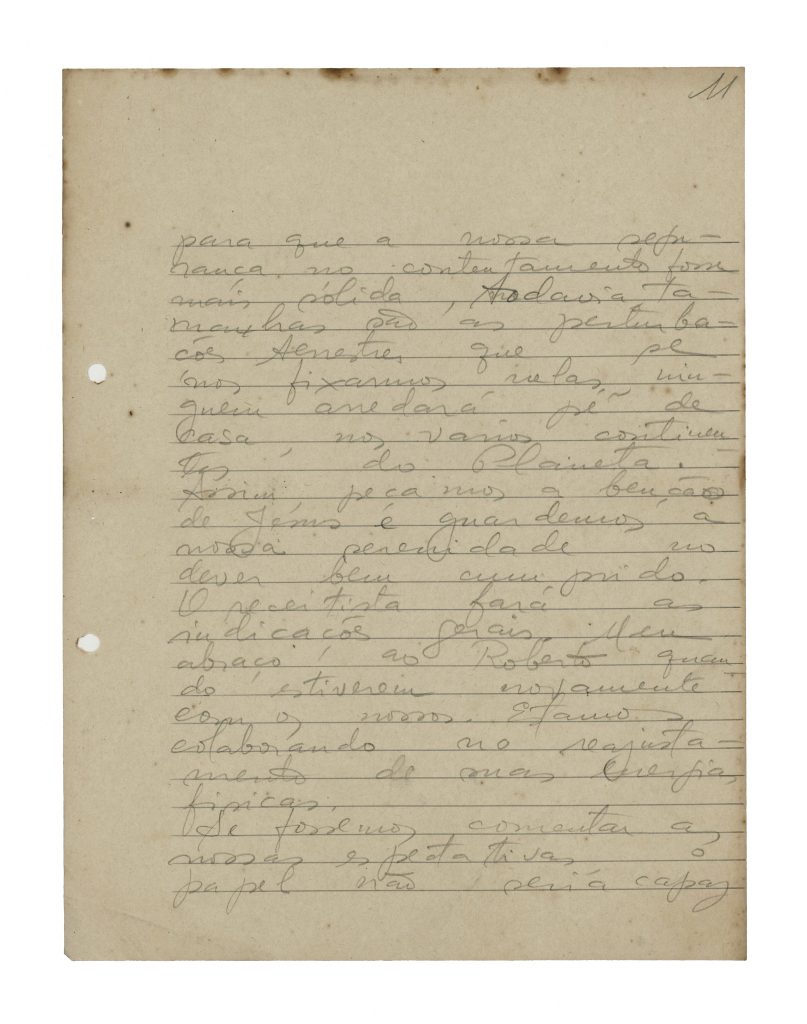 11
para que a nossa segu-
rança no contentamento fosse
mais sólida, todavia, ta-
manhas são as perturba-
ções terrestres que se
nos fixarmos nelas, nin-
guem arredará pé de
casa, nos varios continen
tes do Planeta.
Assim peçamos a benção
de Jesus é guardemos a
nossa serenidade no
dever bem cumprido.
O receitista fará as
indicações gerais. Meu
abraço ao Roberto quan
do estiverem novamente
com os nossos. Estamos
colaborando no reajusta-
mento de suas energias
fisicas.
Se fossemos comentar as
nossas espectativas o
papel não seria capaz